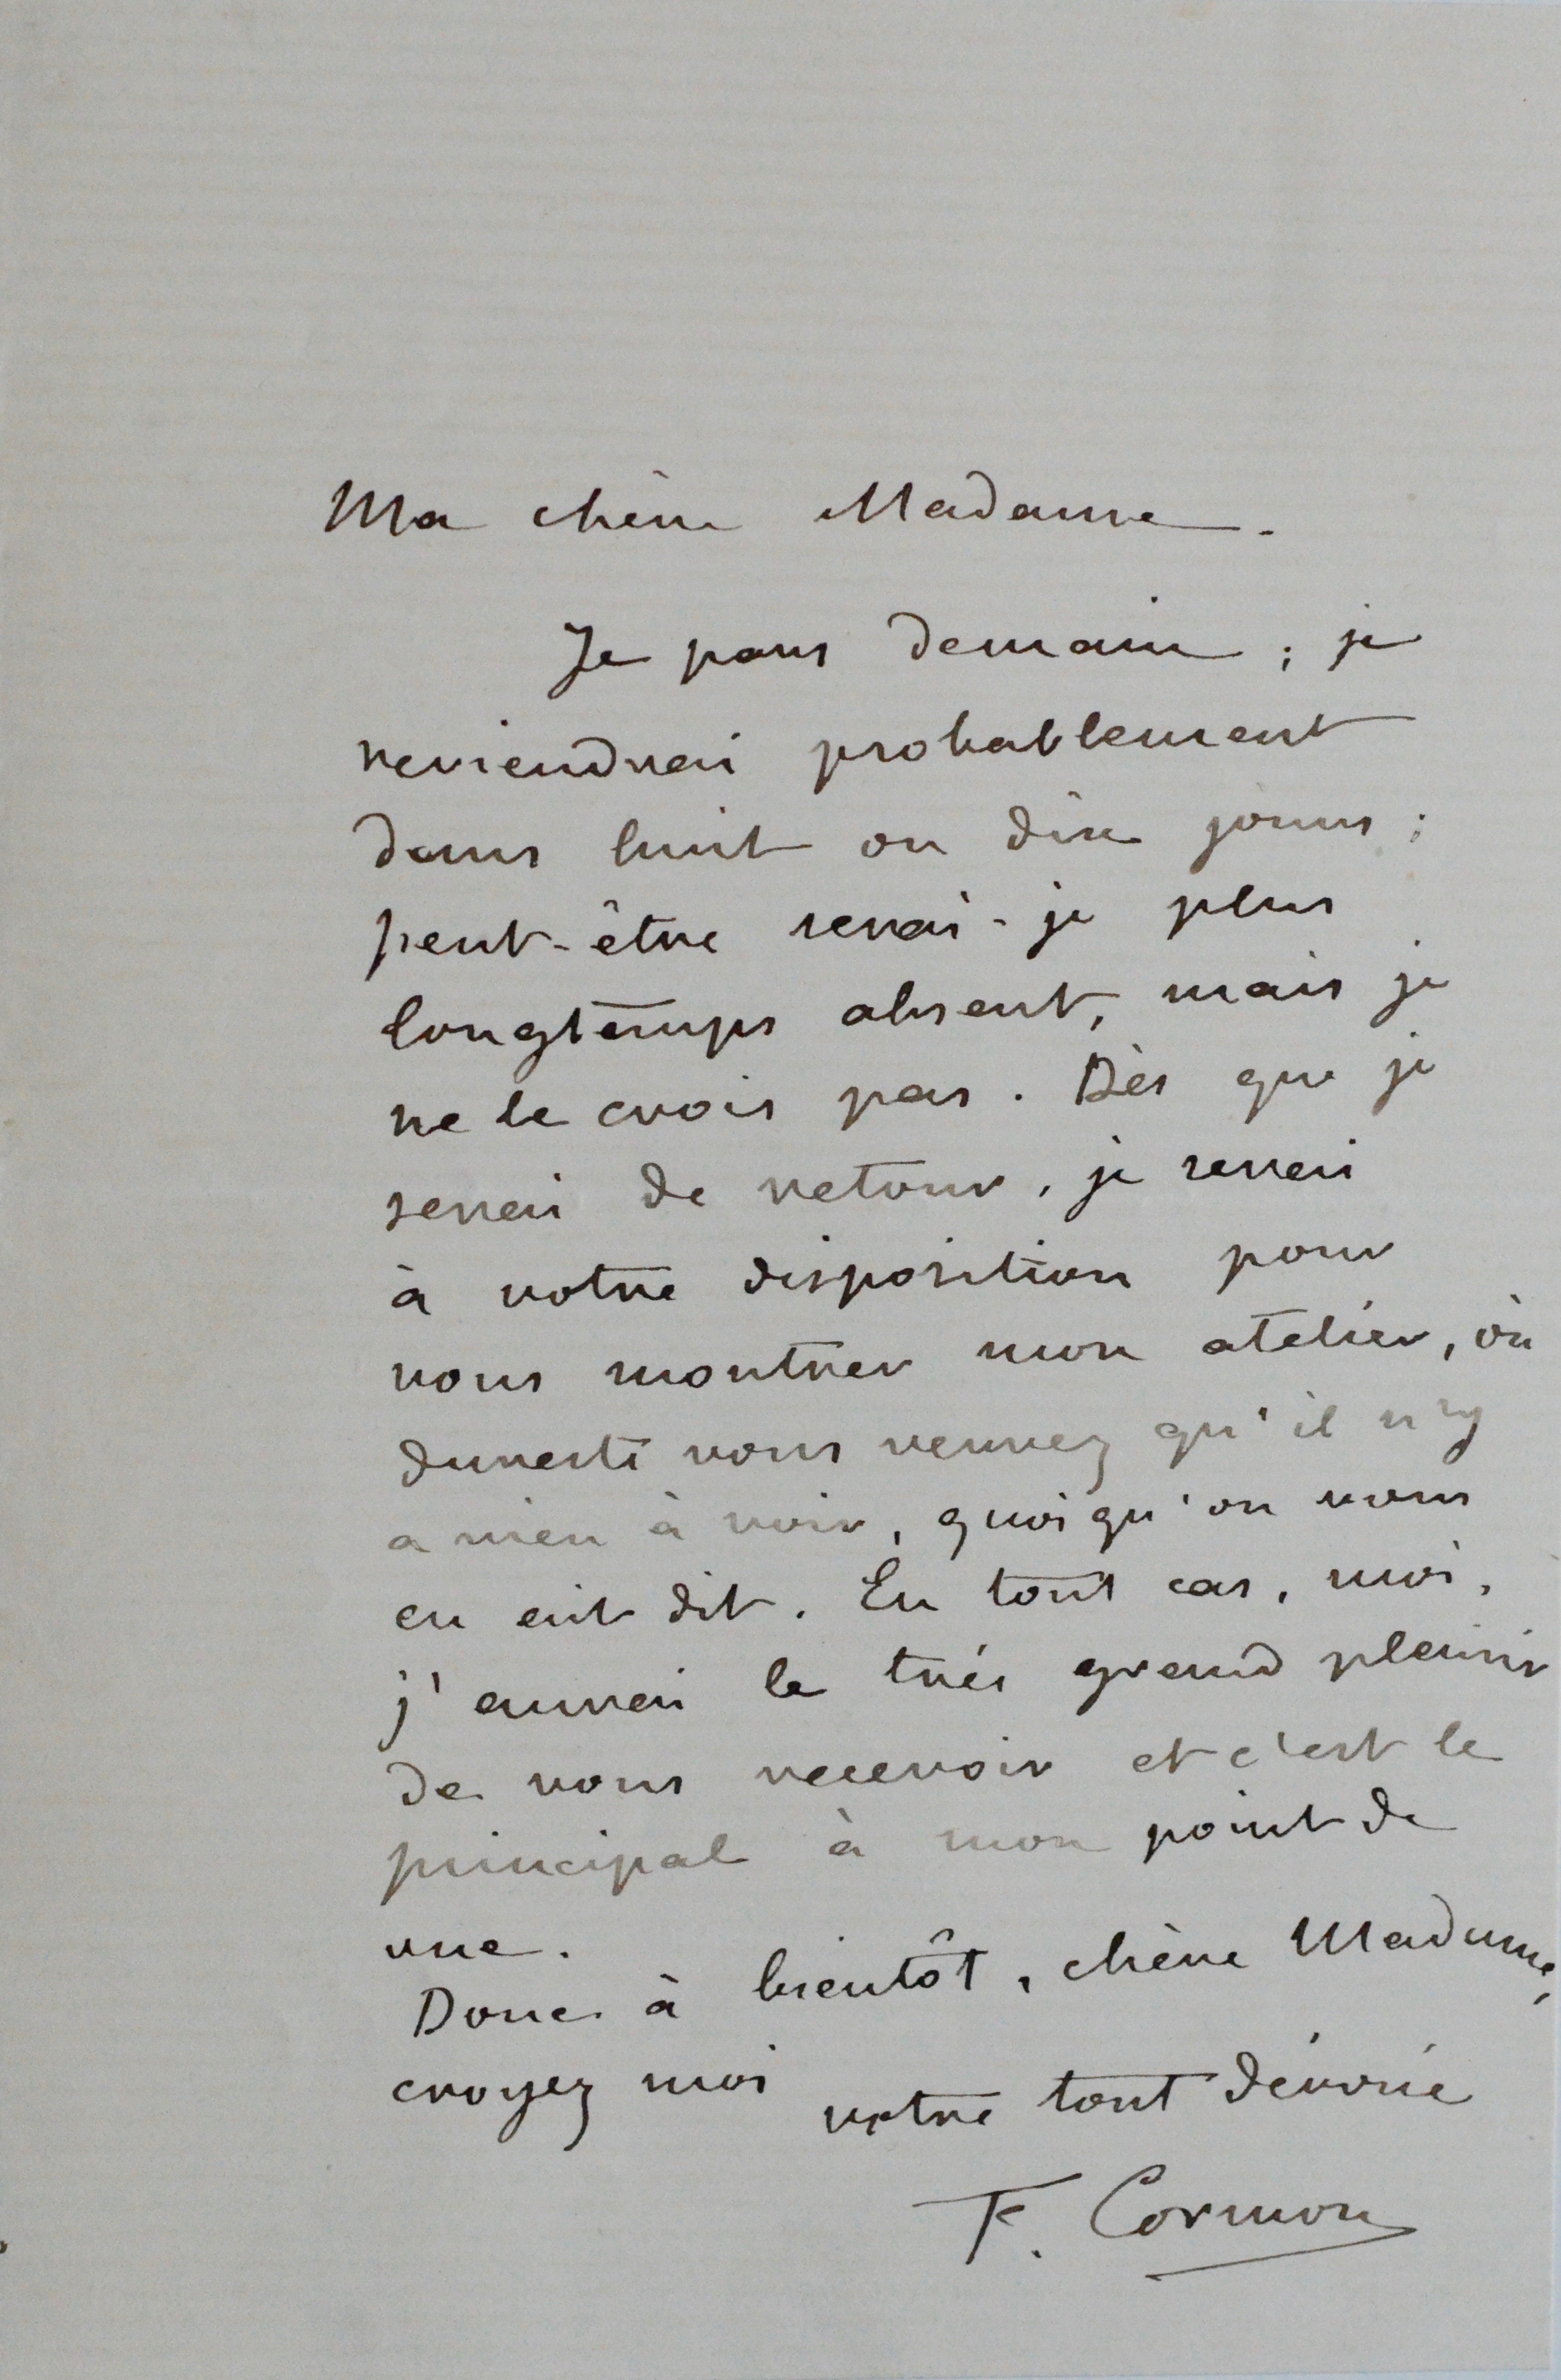 Ma chère Madame.
Je pars demain ; je
reviendrai probablement
dans huit ou dix jours ;
peut-être serai-je plus
longtemps absent, mais je
ne le crois pas. Dès que je
serai de retour, je serai
à votre disposition pour
vous montrer mon atelier, où
du reste vous verrez qu'il n'y
a rien à voir, quoiqu'on vous
en ait dit. En tout cas, moi,
j'aurai le très grand plaisir
de vous recevoir et c'est le
principal à mon point de
vue.
Donc à bientôt, chère Madame,
croyez moi
votre tout dévoué
F. Cormon